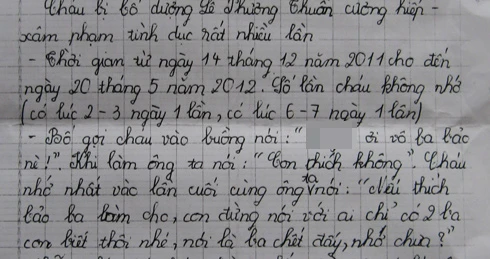 Cháu bị bố dượng Lê Thường Thuần cưỡng hiếp -
xâm phạm tình dục rất nhiều lần
- Thời gian từ ngày 14 tháng 12 năm 2011 cho đến
ngày 20 tháng 5 năm 2012. Số lần cháu không nhớ
(có lúc 2-3 ngày 1 lần, có lúc 6-7 ngày 1 lần)
- Bố gọi cháu vào buồng nói: " ơi vô ba bảo
nì!". Khi làm ông ta nói: "Con thích không". Cháu
nhớ nhất vào lần cuối cùng ông ta nói: "Nếu thích
bảo ba làm cho, con đừng nói với ai chỉ có 2 ba
con biết thôi nhé, nói là ba chết đấy, nhớ chưa?"